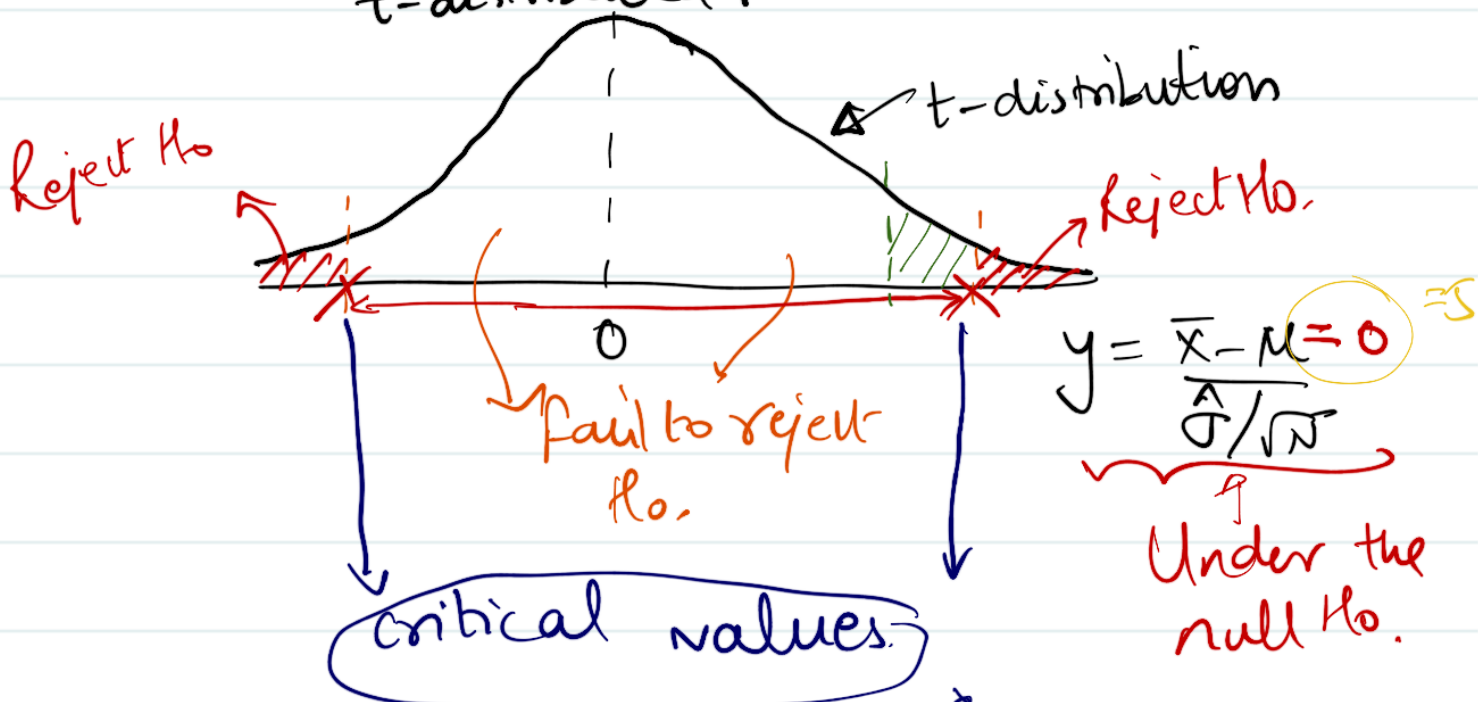 t-distribution
Reject Ho
Reject Ho.
0
y = x̄ - μ = 0
σ̂/√N
= 5
fail to reject
Ho.
Under the
null Ho.
critical values.